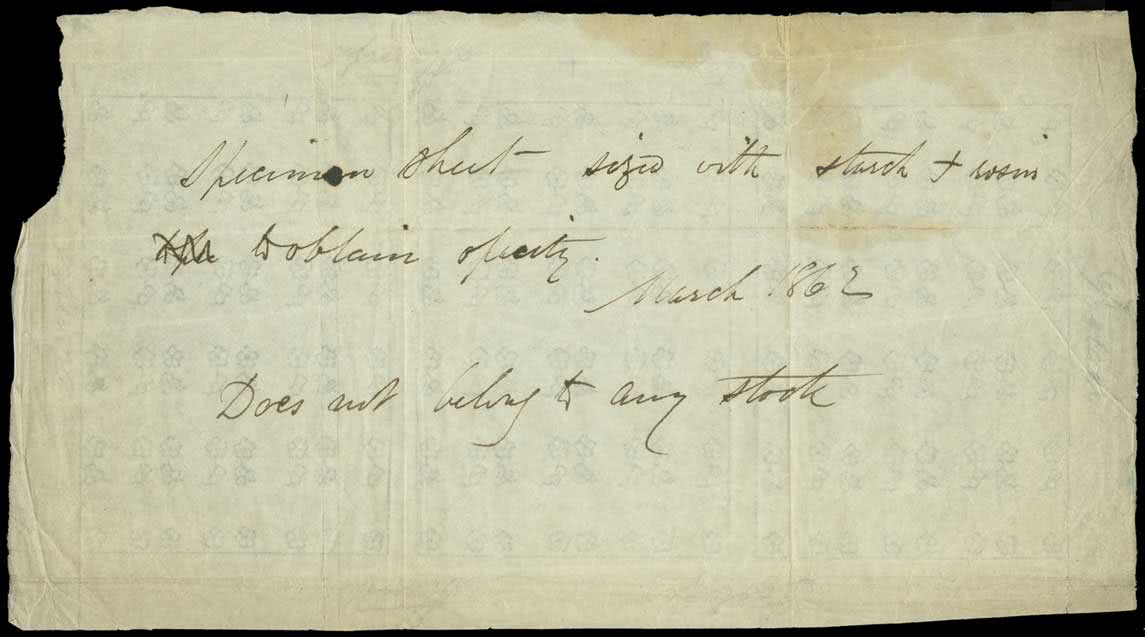 Specimen Sheet sized with starch + rosin
to obtain opacity.
March 1862
Does not belong to any stock